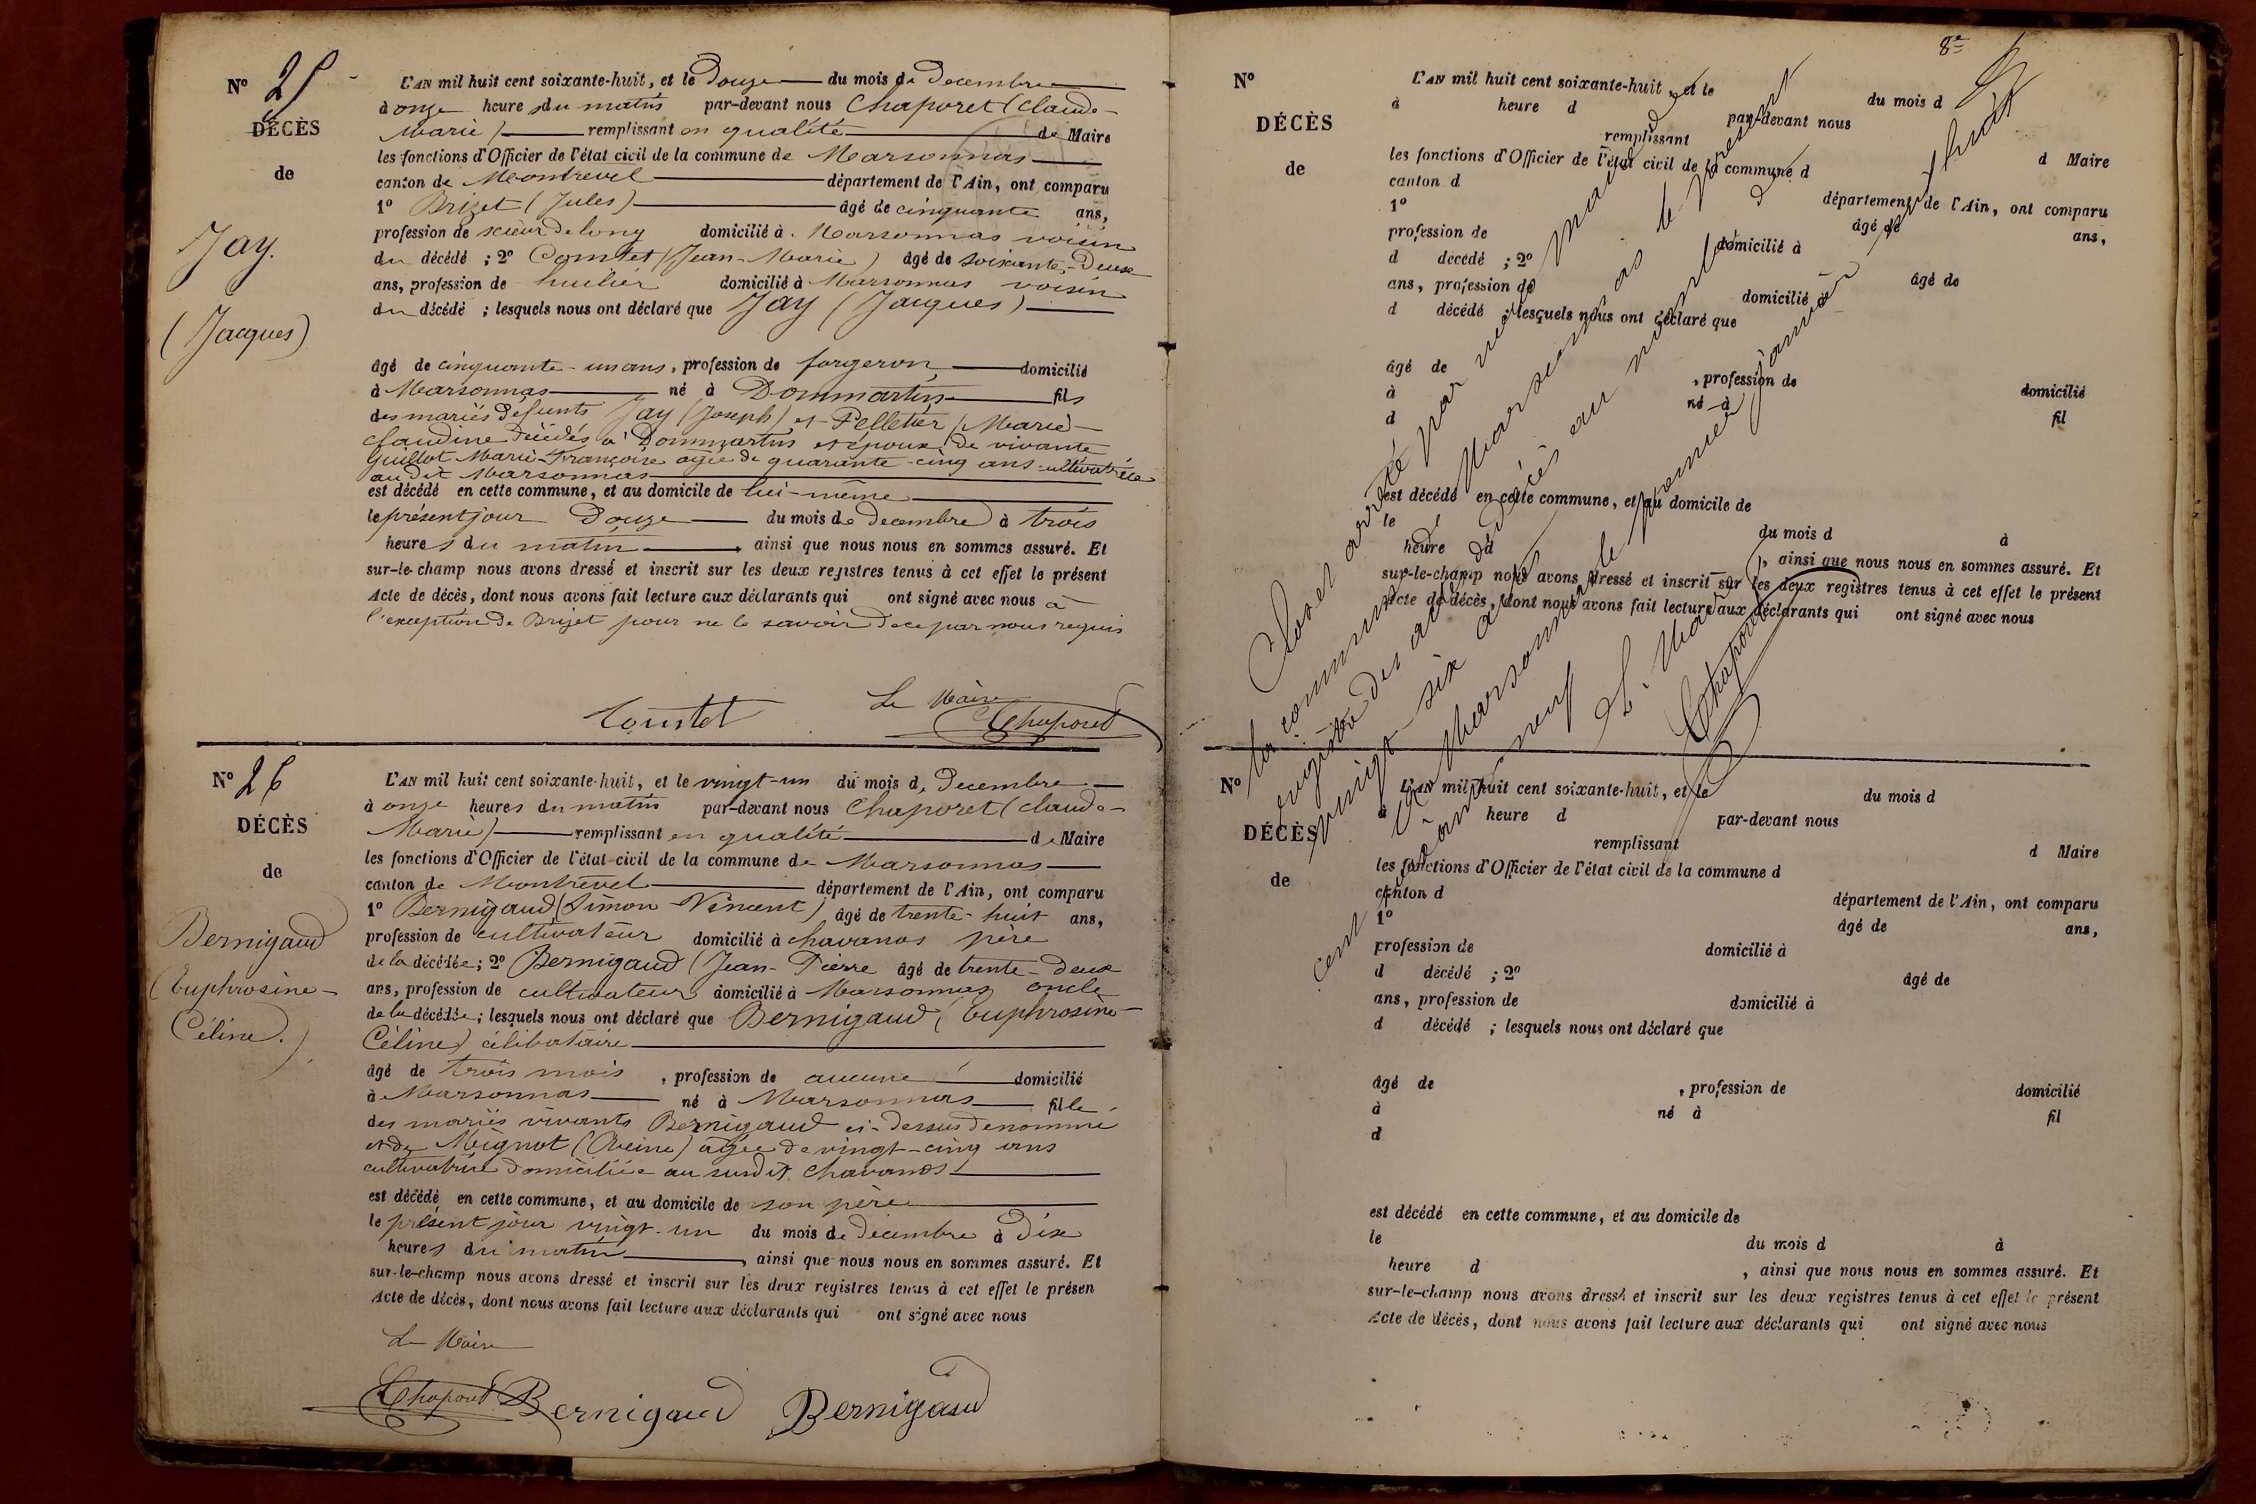 N° 25
DÉCÈS
de
Jay.
(Jacques)
L'AN mil huit cent soixante-huit, et le Douze du mois de Decembre
à onze heures du matin par-devant nous Chaporet (Claude-
Marie) remplissant en qualité de Maire
les fonctions d'Officier de l'état civil de la commune de Marsonnas
canton de Montrevel département de l'Ain, ont comparu
1° Brizet (Jules) âgé de cinquante ans,
profession de scieur de long domicilié à Marsonnas voisin
du décédé ; 2° Comtet (Jean-Marie) âgé de soixante-Deux
ans, profession de huilier domicilié à Marsonnas voisin
du décédé ; lesquels nous ont déclaré que Jay (Jacques)
âgé de cinquante-un ans, profession de forgeron domicilié
à Marsonnas né à Dommartin fils
des mariés défunts Jay (Joseph) et Pelletier (Marie-
Claudine décédés à Dommartin et époux de vivante
Guillot Marie-Françoise agée de quarante-cinq ans cultivatrice
au dit Marsonnas
est décédé en cette commune, et au domicile de lui-même
le présent jour Douze du mois de Decembre à trois
heures du matin, ainsi que nous nous en sommes assuré. Et
sur-le-champ nous avons dressé et inscrit sur les deux registres tenus à cet effet le présent
Acte de décès, dont nous avons fait lecture aux déclarants qui ont signé avec nous à
l'exception de Brizet pour ne le savoir de ce par nous requis
Comtet
Le Maire
Chaporet
N° 26
DÉCÈS
de
Bernigaud
(Euphrosine-
Céline.)
L'AN mil huit cent soixante-huit, et le vingt-un du mois de Decembre
à onze heures du matin par-devant nous Chaporet (Claude-
Marie) remplissant en qualité de Maire
les fonctions d'Officier de l'état civil de la commune de Marsonnas
canton de Montrevel département de l'Ain, ont comparu
1° Bernigaud (Simon Vincent) âgé de trente-huit ans,
profession de cultivateur domicilié à chavanos père
de la décédée; 2° Bernigaud (Jean-Pierre âgé de trente-deux
ans, profession de cultivateur domicilié à Marsonnas oncle
de la décédée; lesquels nous ont déclaré que Bernigaud (Euphrosine-
Céline) célibataire
âgé de trois mois, profession de aucune domicilié
à Marsonnas né à Marsonnas fille
des mariés vivants Bernigaud ci-dessus denommé
et de Mignot (Reine) agée de vingt-cinq ans
cultivatrice domiciliée au susdit chavanos
est décédé en cette commune, et au domicile de son père
le présent jour vingt-un du mois de Decembre à dix
heures du matin, ainsi que nous nous en sommes assuré. Et
sur-le-champ nous avons dressé et inscrit sur les deux registres tenus à cet effet le présen
Acte de décès, dont nous avons fait lecture aux déclarants qui ont signé avec nous
Le Maire
Chaporet Bernigaud Bernigaud
8e
N°
DÉCÈS
de
L'AN mil huit cent soixante-huit, et le du mois d
à heure d par-devant nous
remplissant d Maire
les fonctions d'Officier de l'état civil de la commune d
canton d département de l'Ain, ont comparu
1° âgé de ans,
profession de domicilié à
d décédé ; 2° âgé de
ans, profession de domicilié à
d décédé ; lesquels nous ont déclaré que
âgé de , profession de domicilié
à né à fil
d
est décédé en cette commune, et au domicile de
le du mois d à
heure d , ainsi que nous nous en sommes assuré. Et
sur-le-champ nous avons dressé et inscrit sur les deux registres tenus à cet effet le présent
Acte de décès, dont nous avons fait lecture aux déclarants qui ont signé avec nous
Clos et arrêté par nous maire de
la commune de Marsonnas le présent
registre des actes de décès au nombre de
vingt-six actes
à Marsonnas le premier janvier mil huit
cent soixante neuf
Le Maire
Chaporet
N°
DÉCÈS
de
L'AN mil huit cent soixante-huit, et le du mois d
à heure d par-devant nous
remplissant d Maire
les fonctions d'Officier de l'état civil de la commune d
canton d département de l'Ain, ont comparu
1° âgé de ans,
profession de domicilié à
d décédé ; 2° âgé de
ans, profession de domicilié à
d décédé ; lesquels nous ont déclaré que
âgé de , profession de domicilié
à né à fil
d
est décédé en cette commune, et au domicile de
le du mois d à
heure d , ainsi que nous nous en sommes assuré. Et
sur-le-champ nous avons dressé et inscrit sur les deux registres tenus à cet effet le présent
Acte de décès, dont nous avons fait lecture aux déclarants qui ont signé avec nous